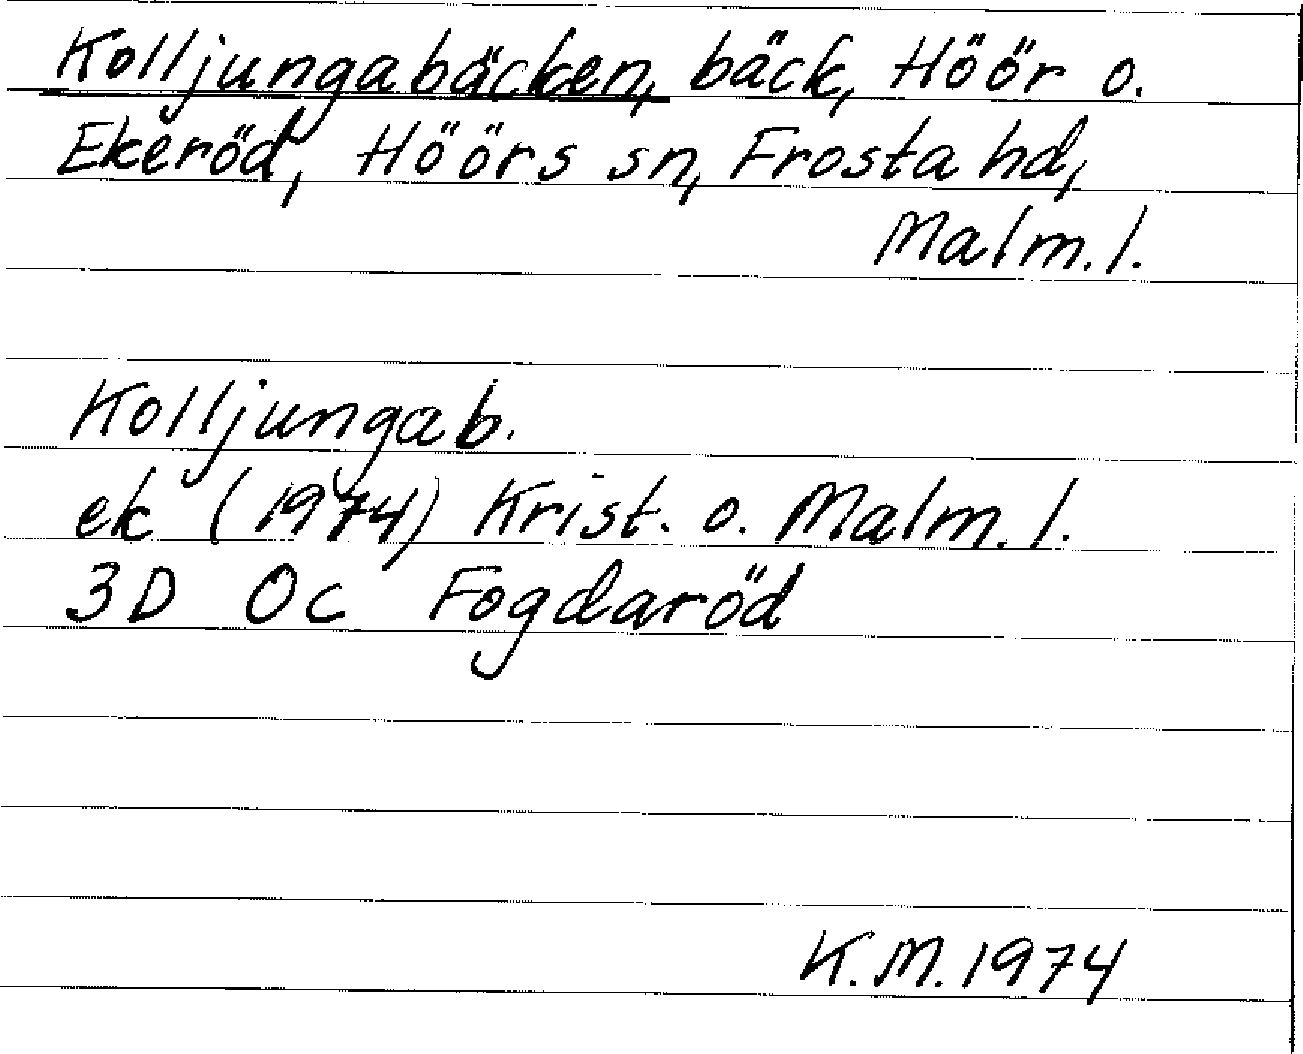 Kolljungabäcken, bäck, Höör o.
Ekeröd, Höörs sn, Frosta hd,
Malm. l.
Kolljungab.
ek (1974) Krist. o. Malm. l.
3D Oc Fogdaröd
K.M. 1974